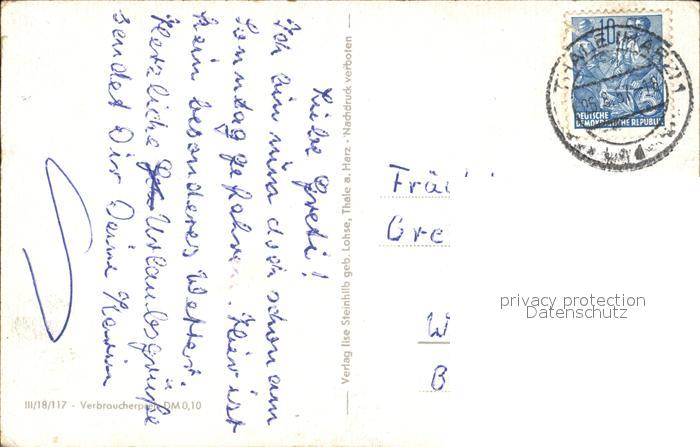 Liebe Greti!
Ich bin nun doch schon am
Sonntag gefahren. Hier ist
kein besonderes Wetter.
Herzliche Urlaubsgrüße
sendet Dir Deine Karin
III/18/117 - Verbraucherpreis DM 0,10
Verlag Ilse Steinhilb geb. Lohse, Thale a. Harz - Nachdruck verboten
10
5
DEUTSCHE
DEMOKRATISCHE REPUBLIK
THALE (HARZ) 1
Fräu
Gre
W
B
privacy protection
Datenschutz